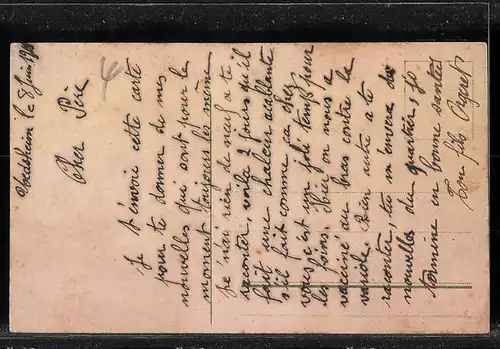 le 8 juin
Cher Père
Je t'envoie cette carte
pour te donner de mes
nouvelles qui sont pour le
moment toujours les même
je n'ai rien de neuf a te
raconter, voila 2 jours qu'il
fait une chaleur acablante
s'il fait comme ça chez
vous c'est un joli temps pour
les foins. Hier on nous a
vacciné au bras contre la
variole. Rien autre a te
raconter, tu m'enverra des
nouvelles du quartier, je
termine en bonne santée
Ton fils